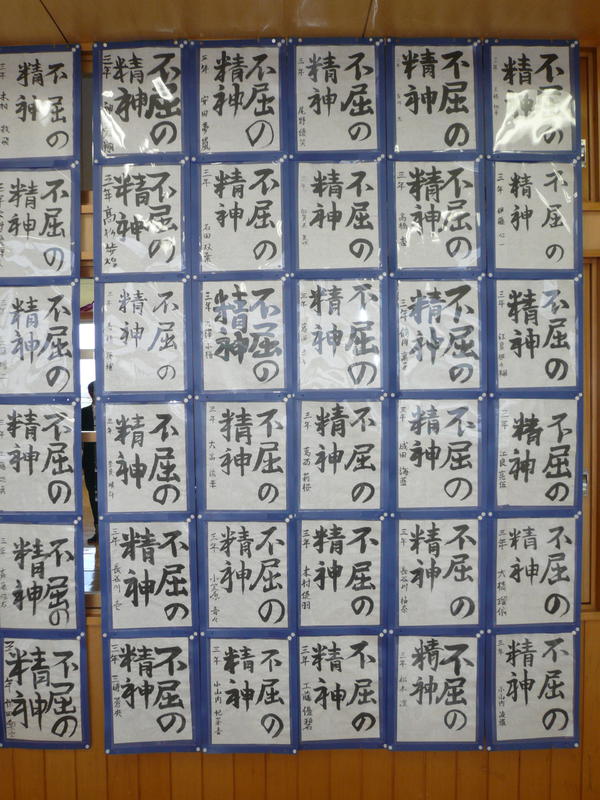 不屈の
精神
三年 木村
不屈の
精神
三年
不屈の
精神
三年 安田
不屈の
精神
三年 尾野
不屈の
精神
三年
不屈の
精神
三年
不屈の
精神
三年
不屈の
精神
三年
不屈の
精神
三年 石田双葉
不屈の
精神
不屈の
精神
三年 高橋
不屈の
精神
三年 伊藤 心
不屈の
精神
三年
不屈の
精神
三年
不屈の
精神
三年
不屈の
精神
三年
不屈の
精神
三年
不屈の
精神
三年
不屈の
精神
三年
不屈の
精神
三年
不屈の
精神
三年
不屈の
精神
三年 葛西莉桜
不屈の
精神
三年 成田
不屈の
精神
三年 江良
不屈の
精神
三年
不屈の
精神
三年 長谷川 壱
不屈の
精神
三年 小笠原
不屈の
精神
三年 木村優羽
不屈の
精神
三年 長谷川柚奈
不屈の
精神
三年 大橋
不屈の
精神
三年
不屈の
精神
三年 三浦
不屈の
精神
三年 小山内
不屈の
精神
三年 工藤優碧
不屈の
精神
三年 松本 凜
不屈の
精神
三年 小山内